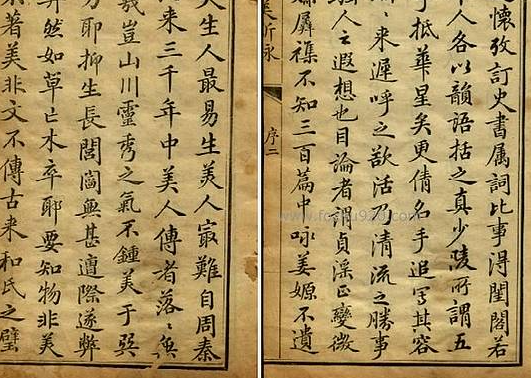 懷攷訂史書属詞比事得閨閣若
干人各以韻語括之真少陵所謂五
字抵華星矣更倩名手追写其容
、来遲呼之欲活乃清流之勝事
人之遐想也目論者謂貞淫正變微
嫌羼襍不知三百篇中咏姜嫄不遺
美新咏
序二
天生人最易生美人寂難自周秦
来三千年中美人傳者落、無
幾豈山川靈秀之氣不鍾美于巽
方耶抑生長閭閻無甚遭際遂弊
弃然如草亡木卒耶要知物非美
著美非文不傳古来和氏之璧